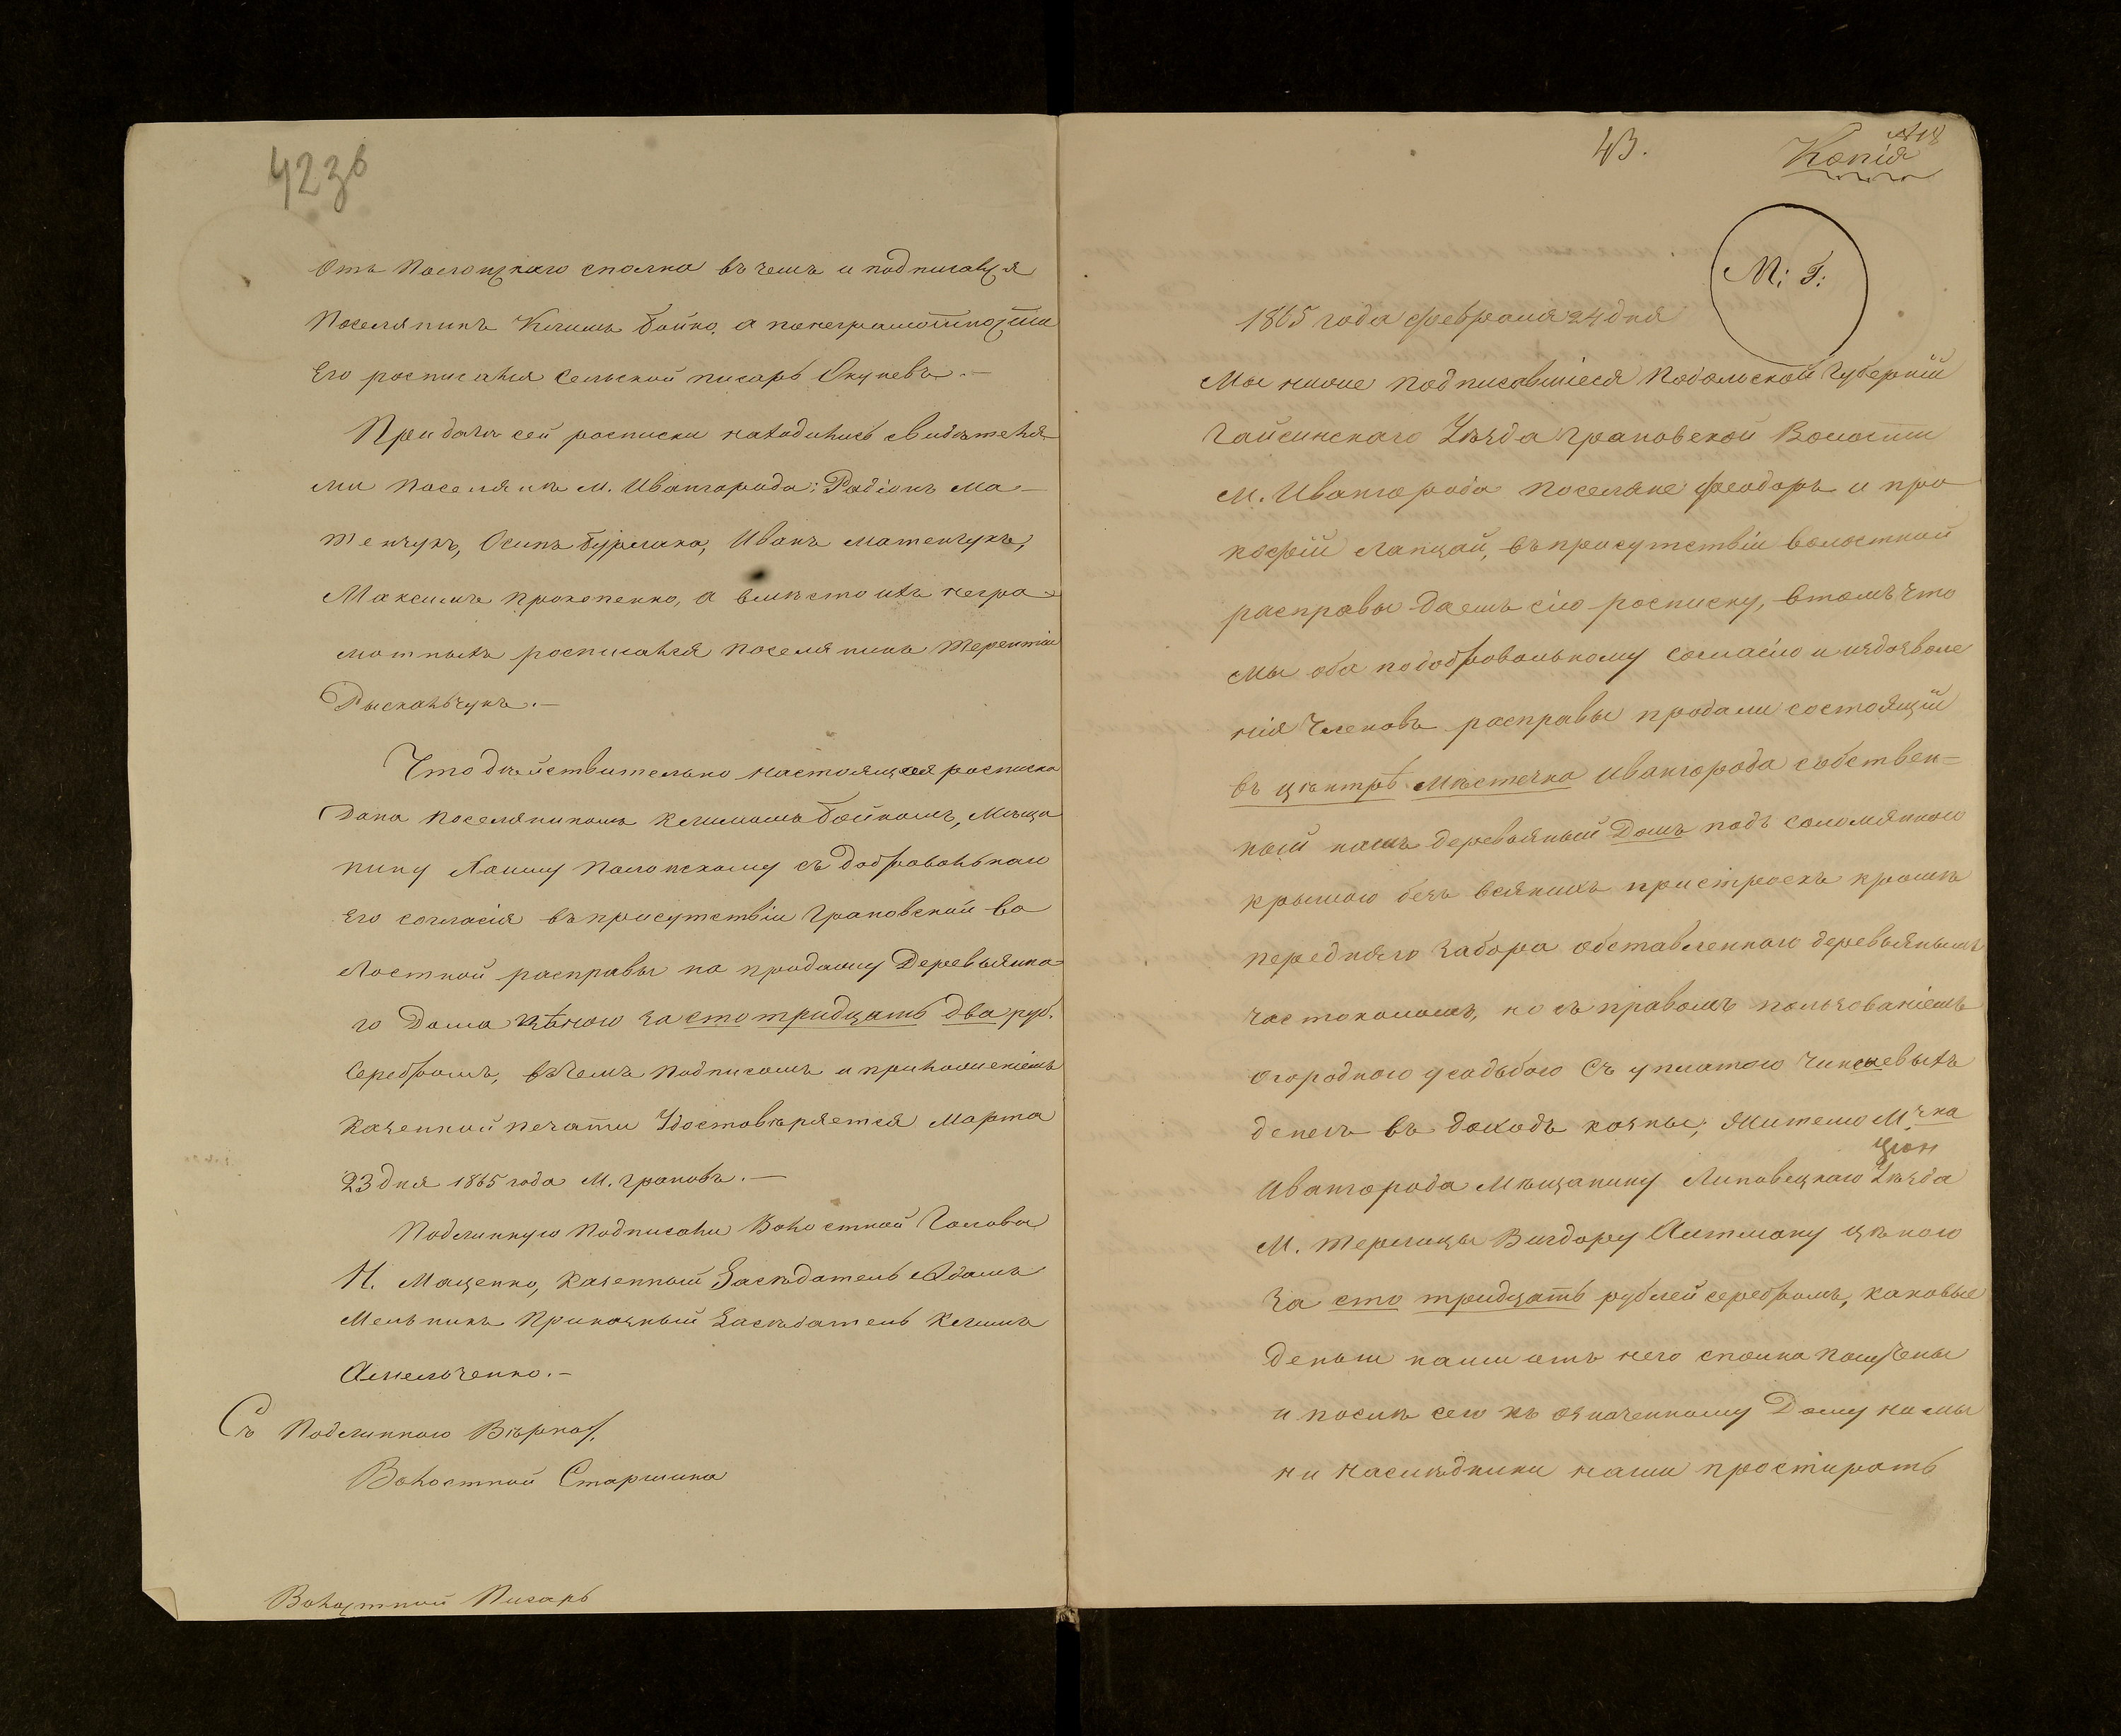 42 зв
Отъ Полонского сполна въ чемъ и подписався
Поселянинъ Климъ Бойко, а понеграмотности
Его росписался Сельской писарь Окуневъ.—
При дачи сей росписки находились свидетеля-
ми поселяне М. Ивангорода: Радіонъ Ма-
тенчукъ, Осипъ Бурлака, Иванъ Матенчукъ,
Максимъ Прокопенко, а вместо ихъ негра-
мотныхъ росписался поселянинъ Терентій
Рыскальчукъ.—
Что дѣйствительно настоящая росписка
Дана поселяниномъ Климомъ Бойкомъ, Мѣща
нину Полонскому съ добровольнаго
Его согласія въ присутствіи Грановской во
лостной расправы на продажу Деревьянна-
го Дома цѣною за сто тридцать два руб.
серебромъ, въ чемъ подписомъ и приложеніемъ
Казенной печати Удостовѣряется Марта
23 дня 1865 года М. Грановъ.—
Подлинную Подписали Волостной Голова
Н. Маценко, Казенный Засѣдатель Адамъ
Мельникъ Приказный Засѣдатель Климъ
Амельченко.—
Съ Подлиннаго Вѣрно
Волостной Старшина
Волостной Писарь
43.
№ 18
Копія
М: П:
1865 года февраля 24 дня
Мы ниже подписавшіеся Подольской Губерніи
Гайсинскаго Уѣзда Грановской Волости
М. Ивангорода поселяне Феодоръ и про
кофій Лапцай, въ присутствіи волостной
расправы даемъ сію росписку, втомъ что
мы оба подобровольному согласію и издозволе
нія Членовъ расправы продали состоящій
въ центрѣ Мѣстечка Ивангорода собствен=
ный нашъ деревьяный Домъ подъ соломянною
крышою безъ всякихъ пристроекъ кромѣ
передняго забора обставленного деревьянымъ
частоколомъ, но съ правомъ пользованіемъ
огородною усадьбою Съ уплатою Чиншевыхъ
денегъ въ доходъ казны, Жителю М. чка
Цюн
Ивангорода Мѣщанину Липовецкаго Уѣзда
М. Терлицы Вигдору Алтману цѣною
За сто тридцать рублей серебромъ, каковые
деньги нами отъ него сполна получены
и послѣ сего къ означенному Дому ни мы
ни наслѣдники наши простирать